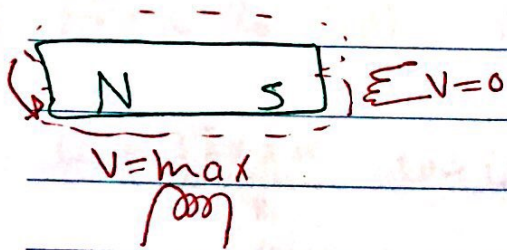 N S
V=0
V=max